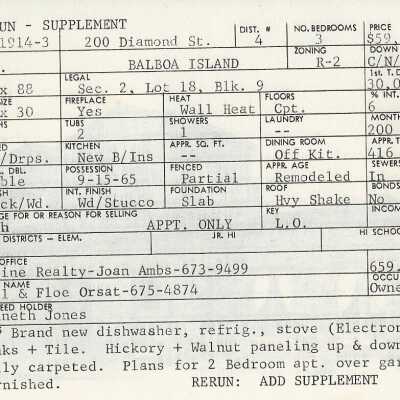 UN - SUPPLEMENT DIST. # NO. BEDROOMS PRICE
1914-3 200 Diamond St. 4 3 $59,
ZONING DOWN
BALBOA ISLAND R-2 C/N/
LEGAL 1st. T.D
x 88 Sec. 2, Lot 18, Blk. 9 30,0
SIZE FIREPLACE HEAT FLOORS % INT.
x 30 Yes Wall Heat Cpt. 6
TUBS SHOWERS LAUNDRY MONTH
2 1 -- 200
KITCHEN APPR. SQ. FT. DINING ROOM APPR. T
/Drps. New B/Ins -- Off Kit. 416
DBL. POSSESSION FENCED APPR. AGE SEWERS
ble 9-15-65 Partial Remodeled In
INT. FINISH FOUNDATION ROOF BONDS
ck/Wd. Wd/Stucco Slab Hvy Shake No
GE FOR OR REASON FOR SELLING KEY INCOM
h APPT. ONLY L.O.
DISTRICTS - ELEM. JR. HI HI SCHOOL
OFFICE
ine Realty-Joan Ambs-673-9499 659.
NAME OCCU
l & Floe Orsat-675-4874 Owne
EED HOLDER
neth Jones
Brand new dishwasher, refrig., stove (Electron
ks + Tile. Hickory + Walnut paneling up & down
ly carpeted. Plans for 2 Bedroom apt. over gar
rnished. RERUN: ADD SUPPLEMENT